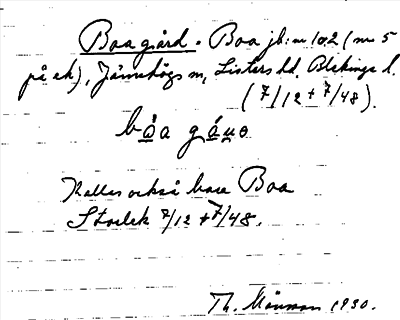 Boa gård. Boa jb: nr 1o2 (nr 5
på ek), Jämshögs sn, Listers hd. Blekinge l.
(7/12 + 7/48).
bå̲a gá̲u̲o
Kallas också bara Boa
Storlek 7/12 + 7/48.
Th. Månsson 1930.